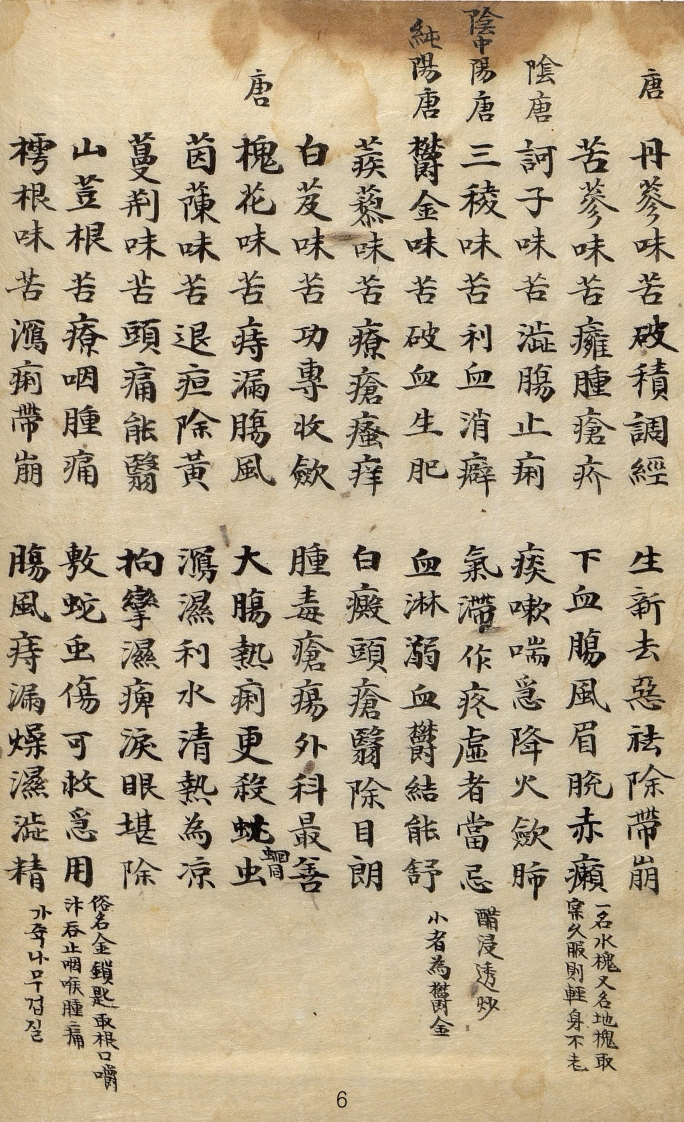 唐
丹蔘味苦破積調經
生新去惡祛除帶崩
苦蔘味苦癰腫瘡疥
下血膓風眉脫赤癩
一名水槐又名地槐取
宲久服則軽身不老
陰唐
訶子味苦澁膓止痢
痰嗽喘急降火歛肺
陰中陽唐
三稜味苦利血消癖
氣滯作疼虛者當忌
醋浸透炒
純陽唐
鬱金味苦破血生肥
血淋溺血鬱結能舒
小者為鬱金
蒺藜味苦療瘡瘙痒
白癜頭瘡翳除目朗
白芨味苦功專收歛
腫毒瘡瘍外科最善
唐
槐花味苦痔漏膓風
大膓熱痢更殺蚘虫
蛔同
茵蔯味苦退疸除黃
瀉濕利水清熱為凉
蔓荆味苦頭痛能醫
拘攣濕痺淚眼堪除
山荳根苦療咽腫痛
敷蛇虫傷可救急用
俗名金鎖匙取根口嚼
汁吞止咽喉腫痛
樗根味苦瀉痢帶崩
膓風痔漏燥濕澁精
가쥭나무겁질
6